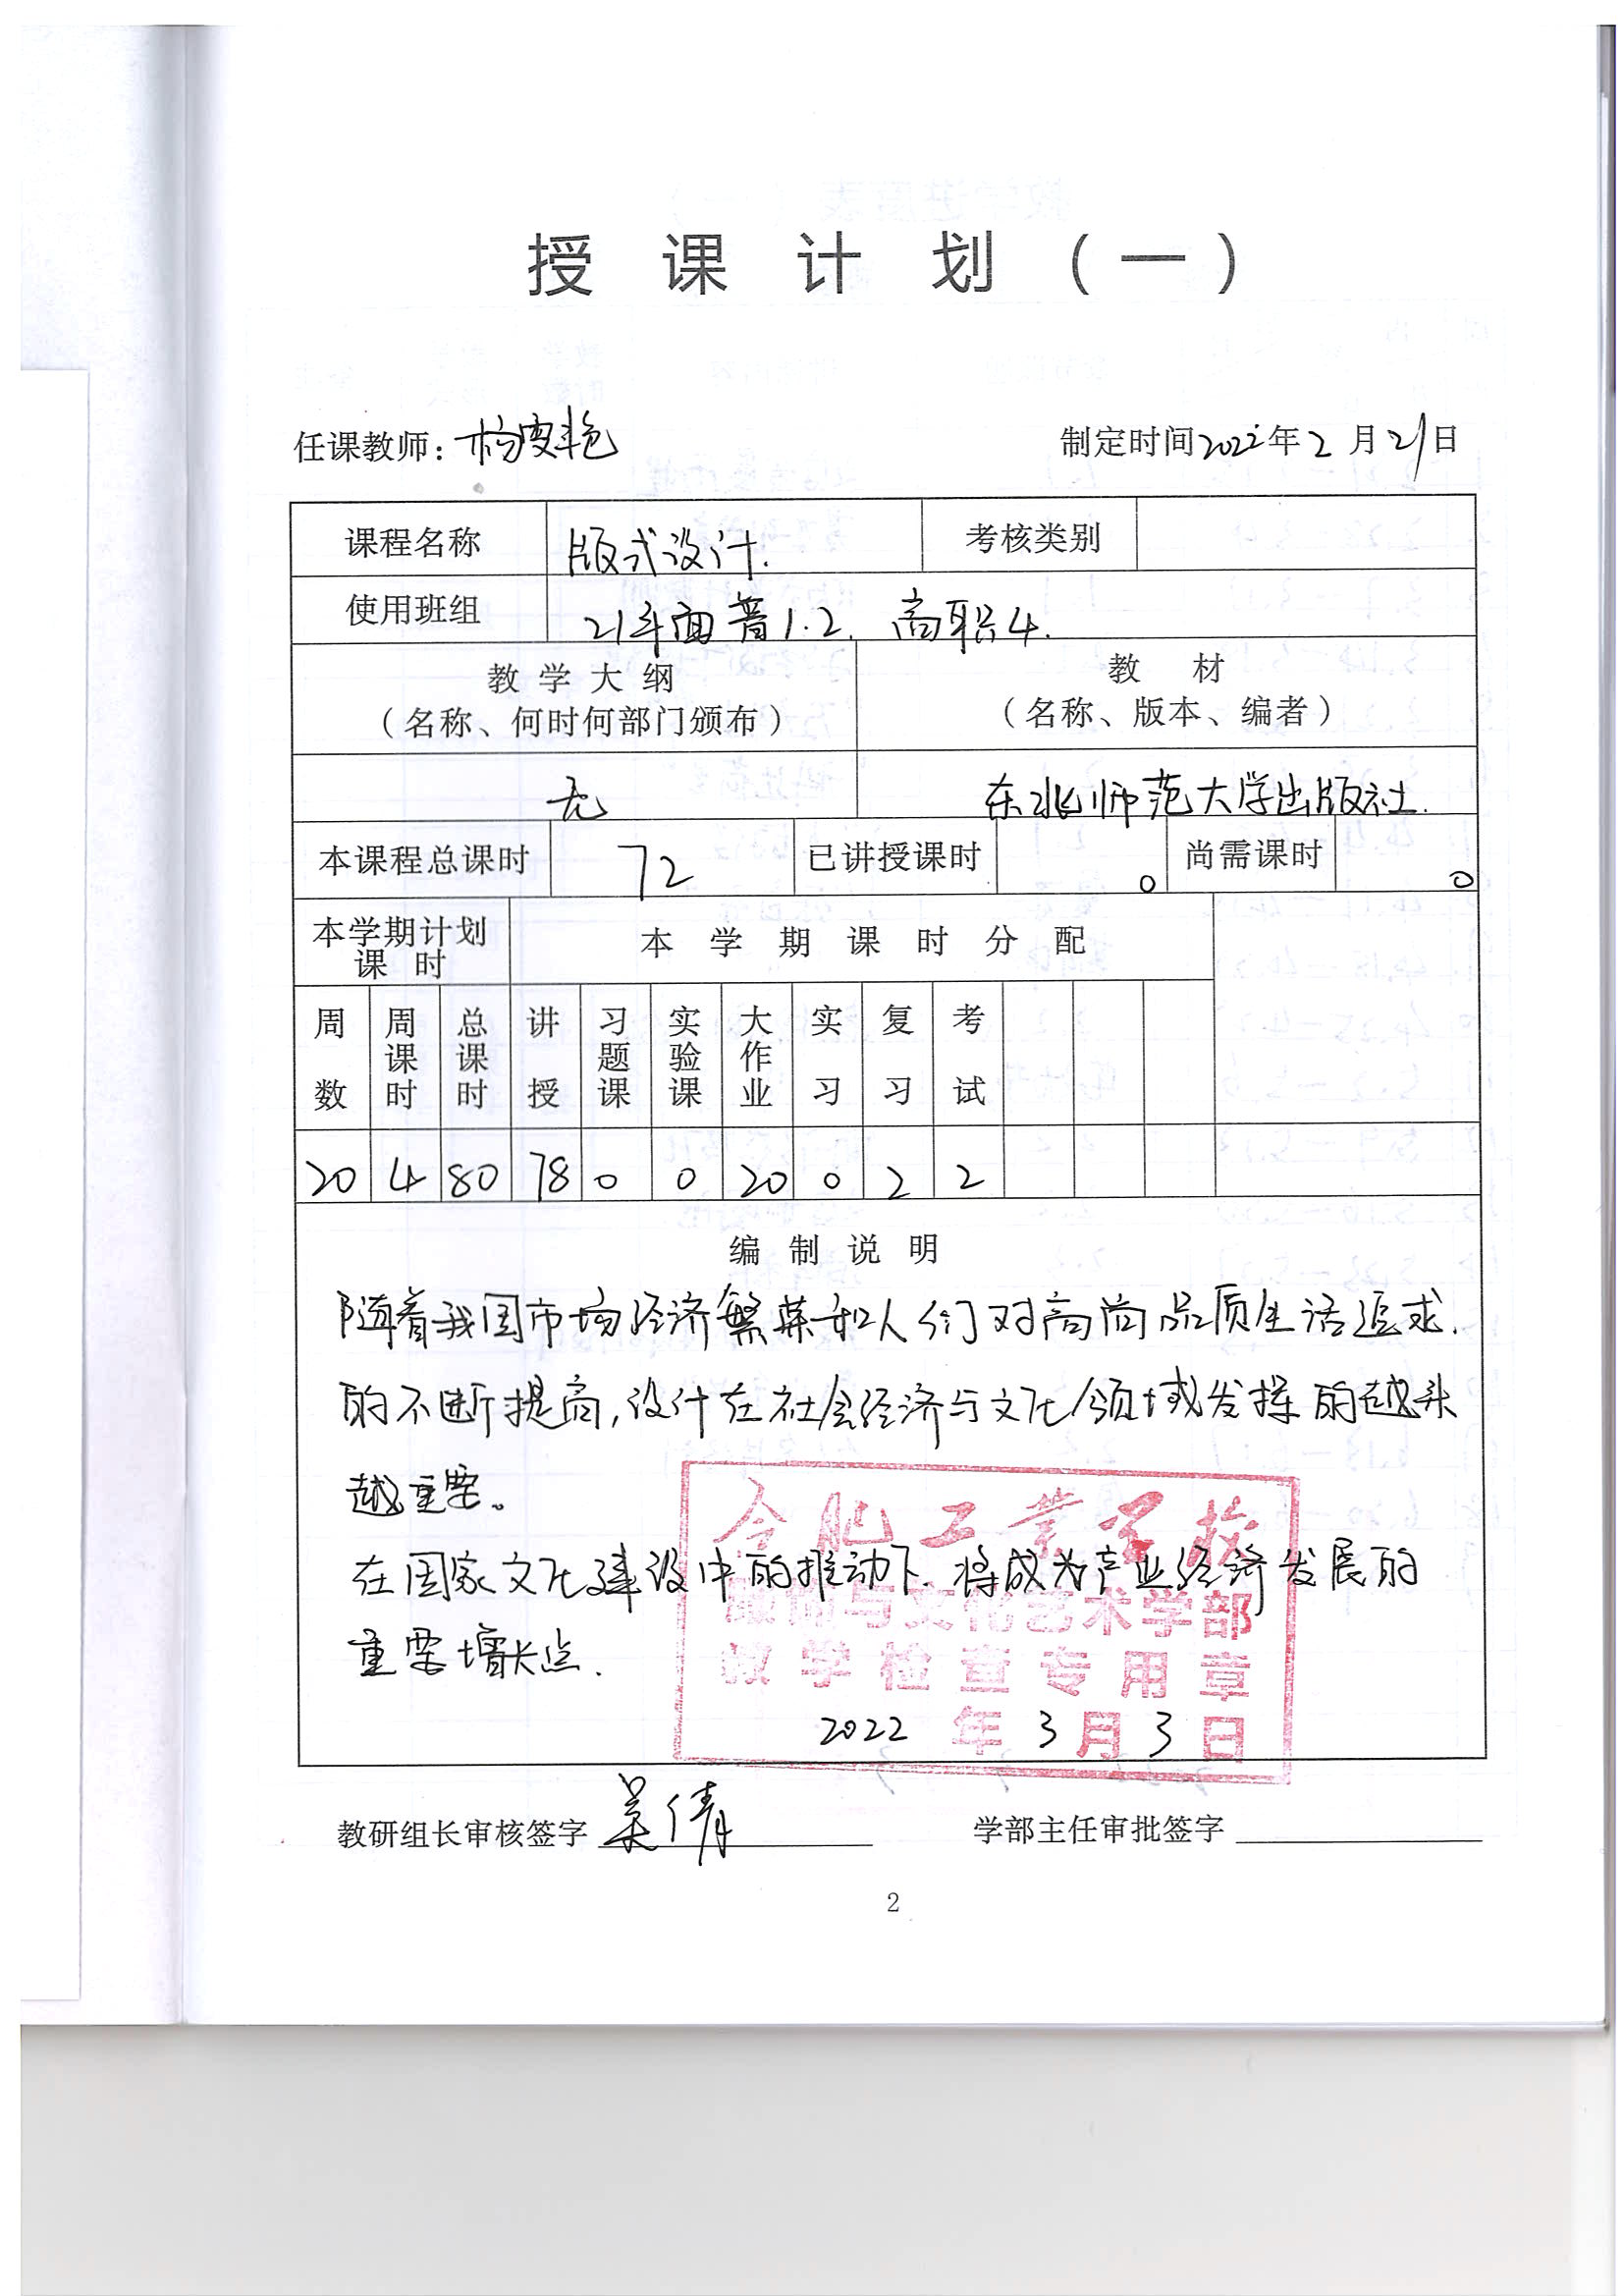 授课计划（一）
任课教师：杨雯艳 制定时间2022年2月21日
课程名称 版式设计. 考核类别
使用班组 21年面普1.2. 高职4.
教学大纲 教材
（名称、何时何部门颁布） （名称、版本、编者）
无 东北师范大学出版社.
本课程总课时 72 已讲授课时 0 尚需课时 0
本学期计划课时 本学期课时分配
周数 周课时 总课时 讲授 习题课 实验课 大作业 实习 复习 考试
20 4 80 78 0 0 20 0 2 2
编制说明
随着我国市场经济繁荣和人们对高尚品质生活追求.
的不断提高,设计在社会经济与文化领域发挥的越来
越重要。
合肥工业学校
在国家文化建设中的推动下.将成为产业经济发展的
与文化艺术学部
重要增长点.
教学检查专用章
2022年3月3日
教研组长审核签字 吴倩 学部主任审批签字
2